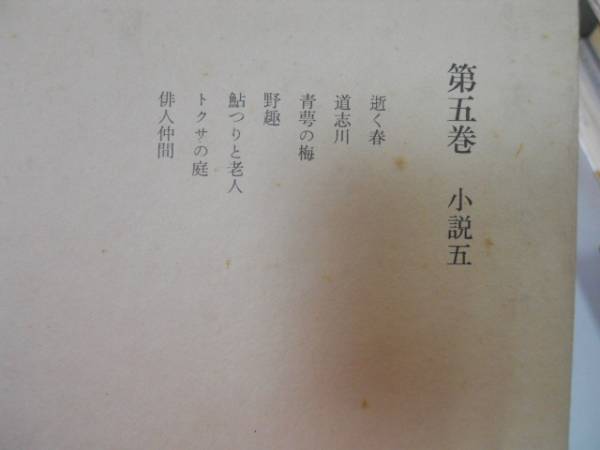 第五巻 小説五
逝く春
道志川
青萼の梅
野趣
鮎つりと老人
トクサの庭
俳人仲間